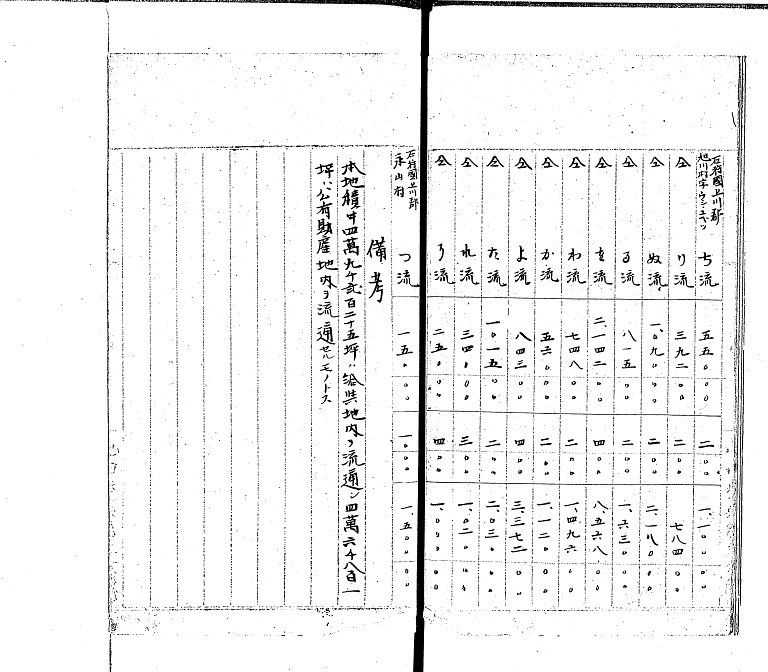 石狩國上川郡
旭川村字ウシシユベツ
ち流 五五〇、〇〇 二、〇〇 一、一〇〇、〇〇
仝 り流 三九二、〇〇 二、〇〇 七八四、〇〇
仝 ぬ流 一、〇九〇、〇〇 二、〇〇 二、一八〇、〇〇
仝 る流 八一五、〇〇 二、〇〇 一、六三〇、〇〇
仝 を流 二、一四二、〇〇 四、〇〇 八、五六八、〇〇
仝 わ流 七四八、〇〇 二、〇〇 一、四九六、〇〇
仝 か流 五六〇、〇〇 二、〇〇 一、一二〇、〇〇
仝 よ流 八四三、〇〇 四、〇〇 三、三七二、〇〇
仝 た流 一、〇一五、〇〇 二、〇〇 二、〇三〇、〇〇
仝 れ流 三四〇、〇〇 三、〇〇 一、〇二〇、〇〇
仝 そ流 二五〇、〇〇 四、〇〇 一、〇〇〇、〇〇
石狩國上川郡
永山村
つ流 一五〇、〇〇 一〇、〇〇 一、五〇〇、〇〇
備考
本地積中四萬九千弐百二十五坪ハ給與地内ヲ流通シ四萬六千八百一
坪ハ公有財産地内ヲ流通セルモノトス